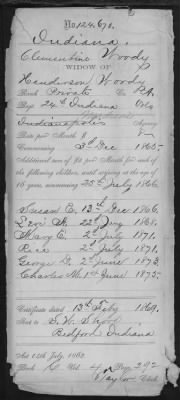 No. 124,678.
Indiana.
Clementine Woody
WIDOW OF
Henderson Woody
Rank Private Co. D.
Reg. 24th Indiana Vols
Indianapolis Agency
Rate per Month 8
Commencing 3d Dec 1865.
Additional sum of $2 per Month for each of
the following children, until arriving at the age of
16 years, commencing 25th July 1866.
Susan E. 13th Dec 1866.
Levi 22d 1868.
Mary E. 2d July 1871.
2d July 1871.
George 2d June 1873.
Charles M. 1st June 1875.
Certificate dated 13th Feby 1869.
Sent to
Bedford Indiana
Act 14th July, 1862.
Book Vol. 4 Page 292
Clerk.